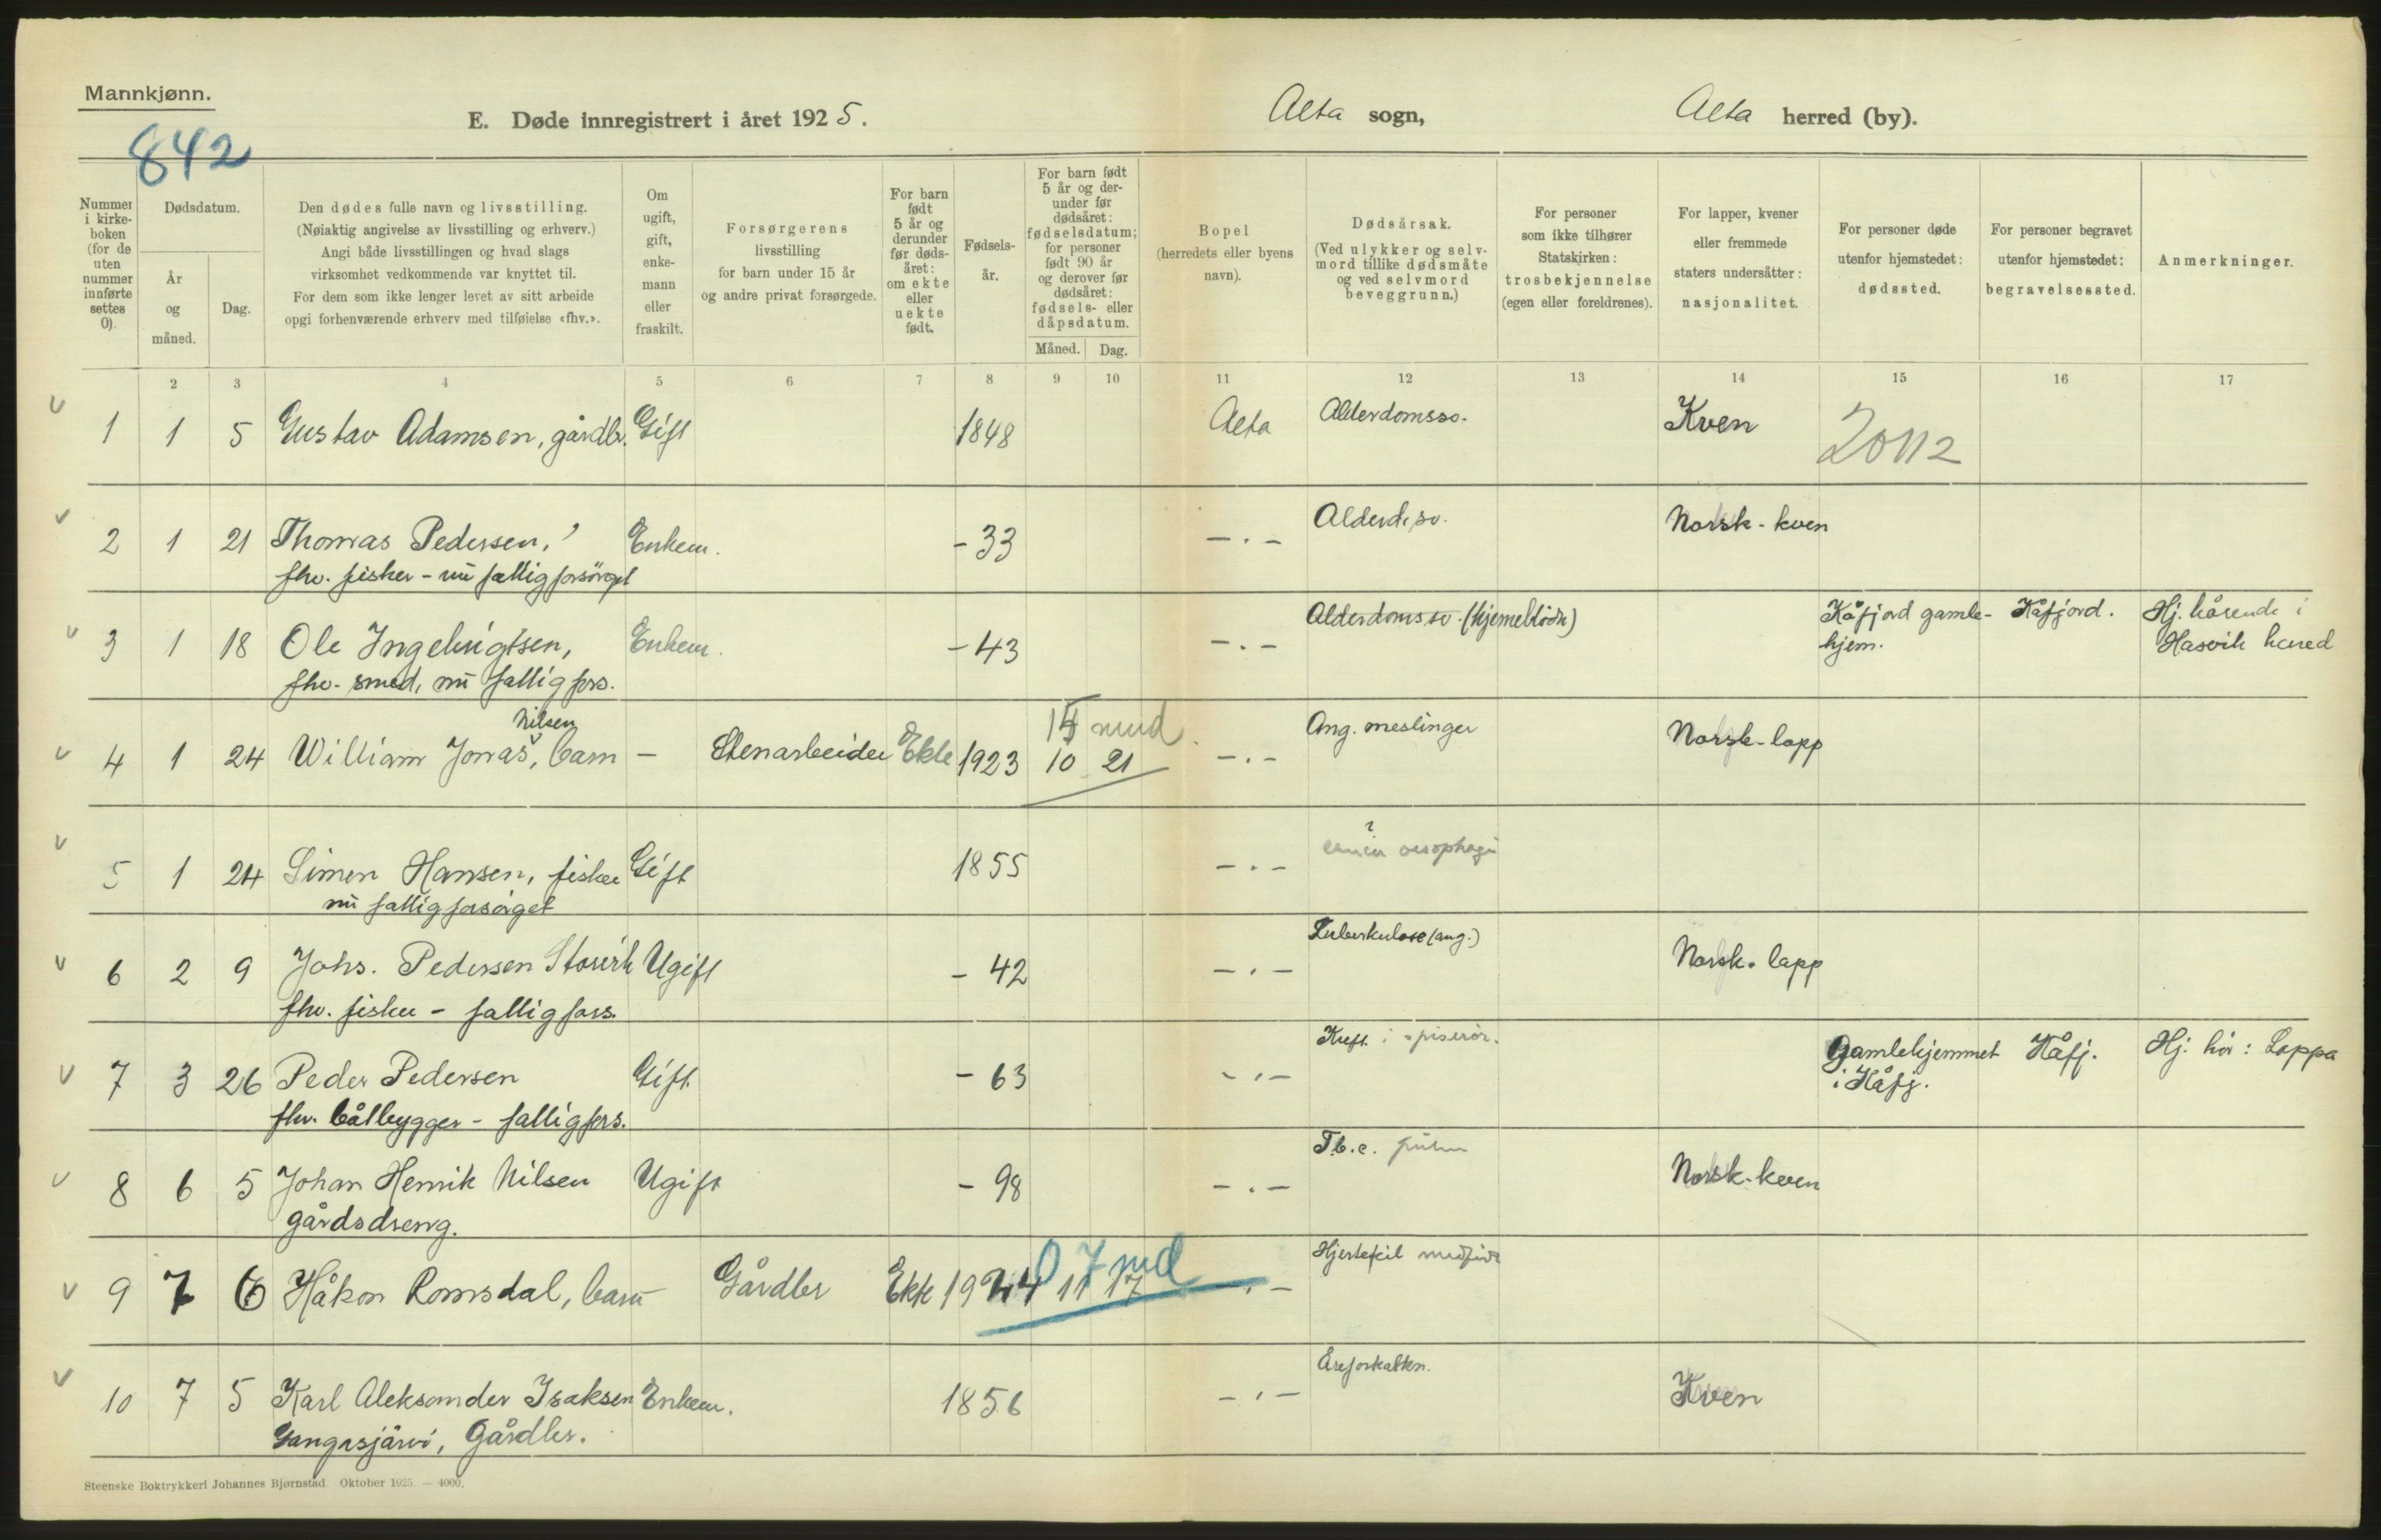 Mannkjønn.
842
E. Døde innregistrert i året 1925.
Alta sogn,
Alta herred (by).
Nummer i kirke-boken (for de uten nummer innførte settes 0).
Dødsdatum.
År og måned.
Dag.
Den dødes fulle navn og livsstilling.
(Nøiaktig angivelse av livsstilling og erhverv.)
Angi både livsstillingen og hvad slags
virksomhet vedkommende var knyttet til.
For dem som ikke lenger levet av sitt arbeide
opgi forhenværende erhverv med tilføielse «fhv.».
Om ugift, gift, enke-mann eller fraskilt.
Forsørgerens
livsstilling
for barn under 15 år
og andre privat forsørgede.
For barn født 5 år og derunder før døds-året: om ekte eller uekte født.
Fødsels-år.
For barn født 5 år og der-under før dødsåret: fødselsdatum; for personer født 90 år og derover før dødsåret: fødsels- eller dåpsdatum.
Måned. Dag.
Bopel
(herredets eller byens
navn).
Dødsårsak.
(Ved ulykker og selv-
mord tillike dødsmåte
og ved selvmord
beveggrunn.)
For personer
som ikke tilhører
Statskirken:
trosbekjennelse
(egen eller foreldrenes).
For lapper, kvener
eller fremmede
staters undersåtter:
nasjonalitet.
For personer døde
utenfor hjemstedet:
dødssted.
For personer begravet
utenfor hjemstedet:
begravelsessted.
Anmerkninger.
2 3 4 5 6 7 8 9 10 11 12 13 14 15 16 17
v 1 1 5 Gustav Adamsen, gårdbr. Gift 1848 Alta Alderdomssv. Kven 20112
v 2 1 21 Thomas Pedersen, Enkem. - 33 - . - Alderd.sv. Norsk-kven
fhv. fisker - nu fattigforsörget
v 3 1 18 Ole Ingebrigtsen, Enkem. - 43 - . - Alderdomssv. (hjemeblödn) Kåfjord gamle- Kåfjord. Hj. hörende i
fhv. smed, nu fattigfors. hjem. Hasvik herred
Nilsen 15 mnd
v 4 1 24 William Jonas, barn - Stenarbeider Ekte 1923 10 21 - . - Ang. meslinger Norsk-lapp
v 5 1 24 Simen Hansen, fisker Gift 1855 - . - ? cancer oesophagi
nu fattigforsörget
v 6 2 9 Johs. Pedersen Storvik Ugift - 42 - . - Tuberkulose (ang.) Norsk-lapp
fhv. fisker - fattigfors.
v 7 3 26 Peder Pedersen Gift - 63 - . - Kreft i spiserör. Gamlehjemmet Kåfj. Hj. hör: Loppa
fhv. båtbygger - fattigfors. i Kåfj.
v 8 6 5 Johan Henrik Nilsen Ugift - 98 - . - Tb.c. pulm Norsk-kven
gårdsdreng.
0 7 md
v 9 7 6 Håkon Romsdal, barn - Gårdbr Ekte 1924 11 17 - . - Hjertefeil medfödt
v 10 7 5 Karl Aleksander Isaksen Enkem. 1856 - . - Åreforkalkn. Kven
Gangasjärvi, Gårdbr.
Steenske Boktrykkeri Johannes Bjørnstad. Oktober 1925 — 4000.